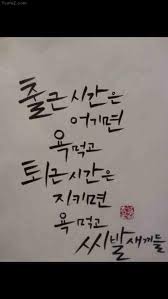 출근 시간은
어기면
욕먹고
퇴근 시간은
지키면
욕먹고
씨발 새끼들